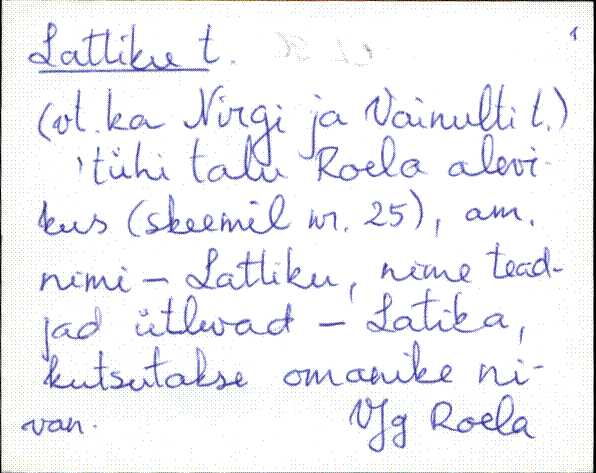 Lattiku t. 1
(vt. ka Nirgi ja Vainulti t.)
'tühi talu Roela alevi-
kus (skeemil nr. 25), am.
nimi – Lattiku, nime tead-
jad ütlevad – Latika,
kutsutakse omanike ni-
van. VJg Roela